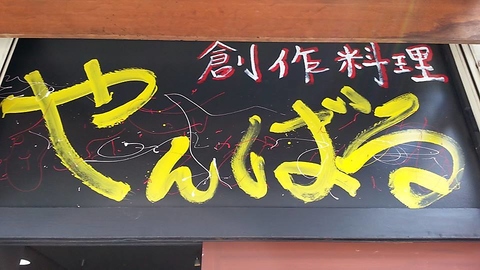 創作料理
やんばる